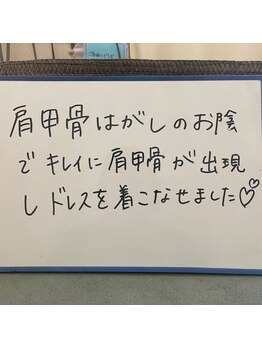 肩甲骨はがしのお陰
でキレイに肩甲骨が出現
しドレスを着こなせました♡♡